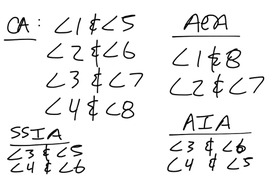 CA: ∠1 & ∠5
∠2 & ∠6
∠3 & ∠7
∠4 & ∠8
AEA
∠1 & 8
∠2 & ∠7
SSIA
∠3 & ∠5
∠4 & ∠6
AIA
∠3 & ∠6
∠4 & ∠5